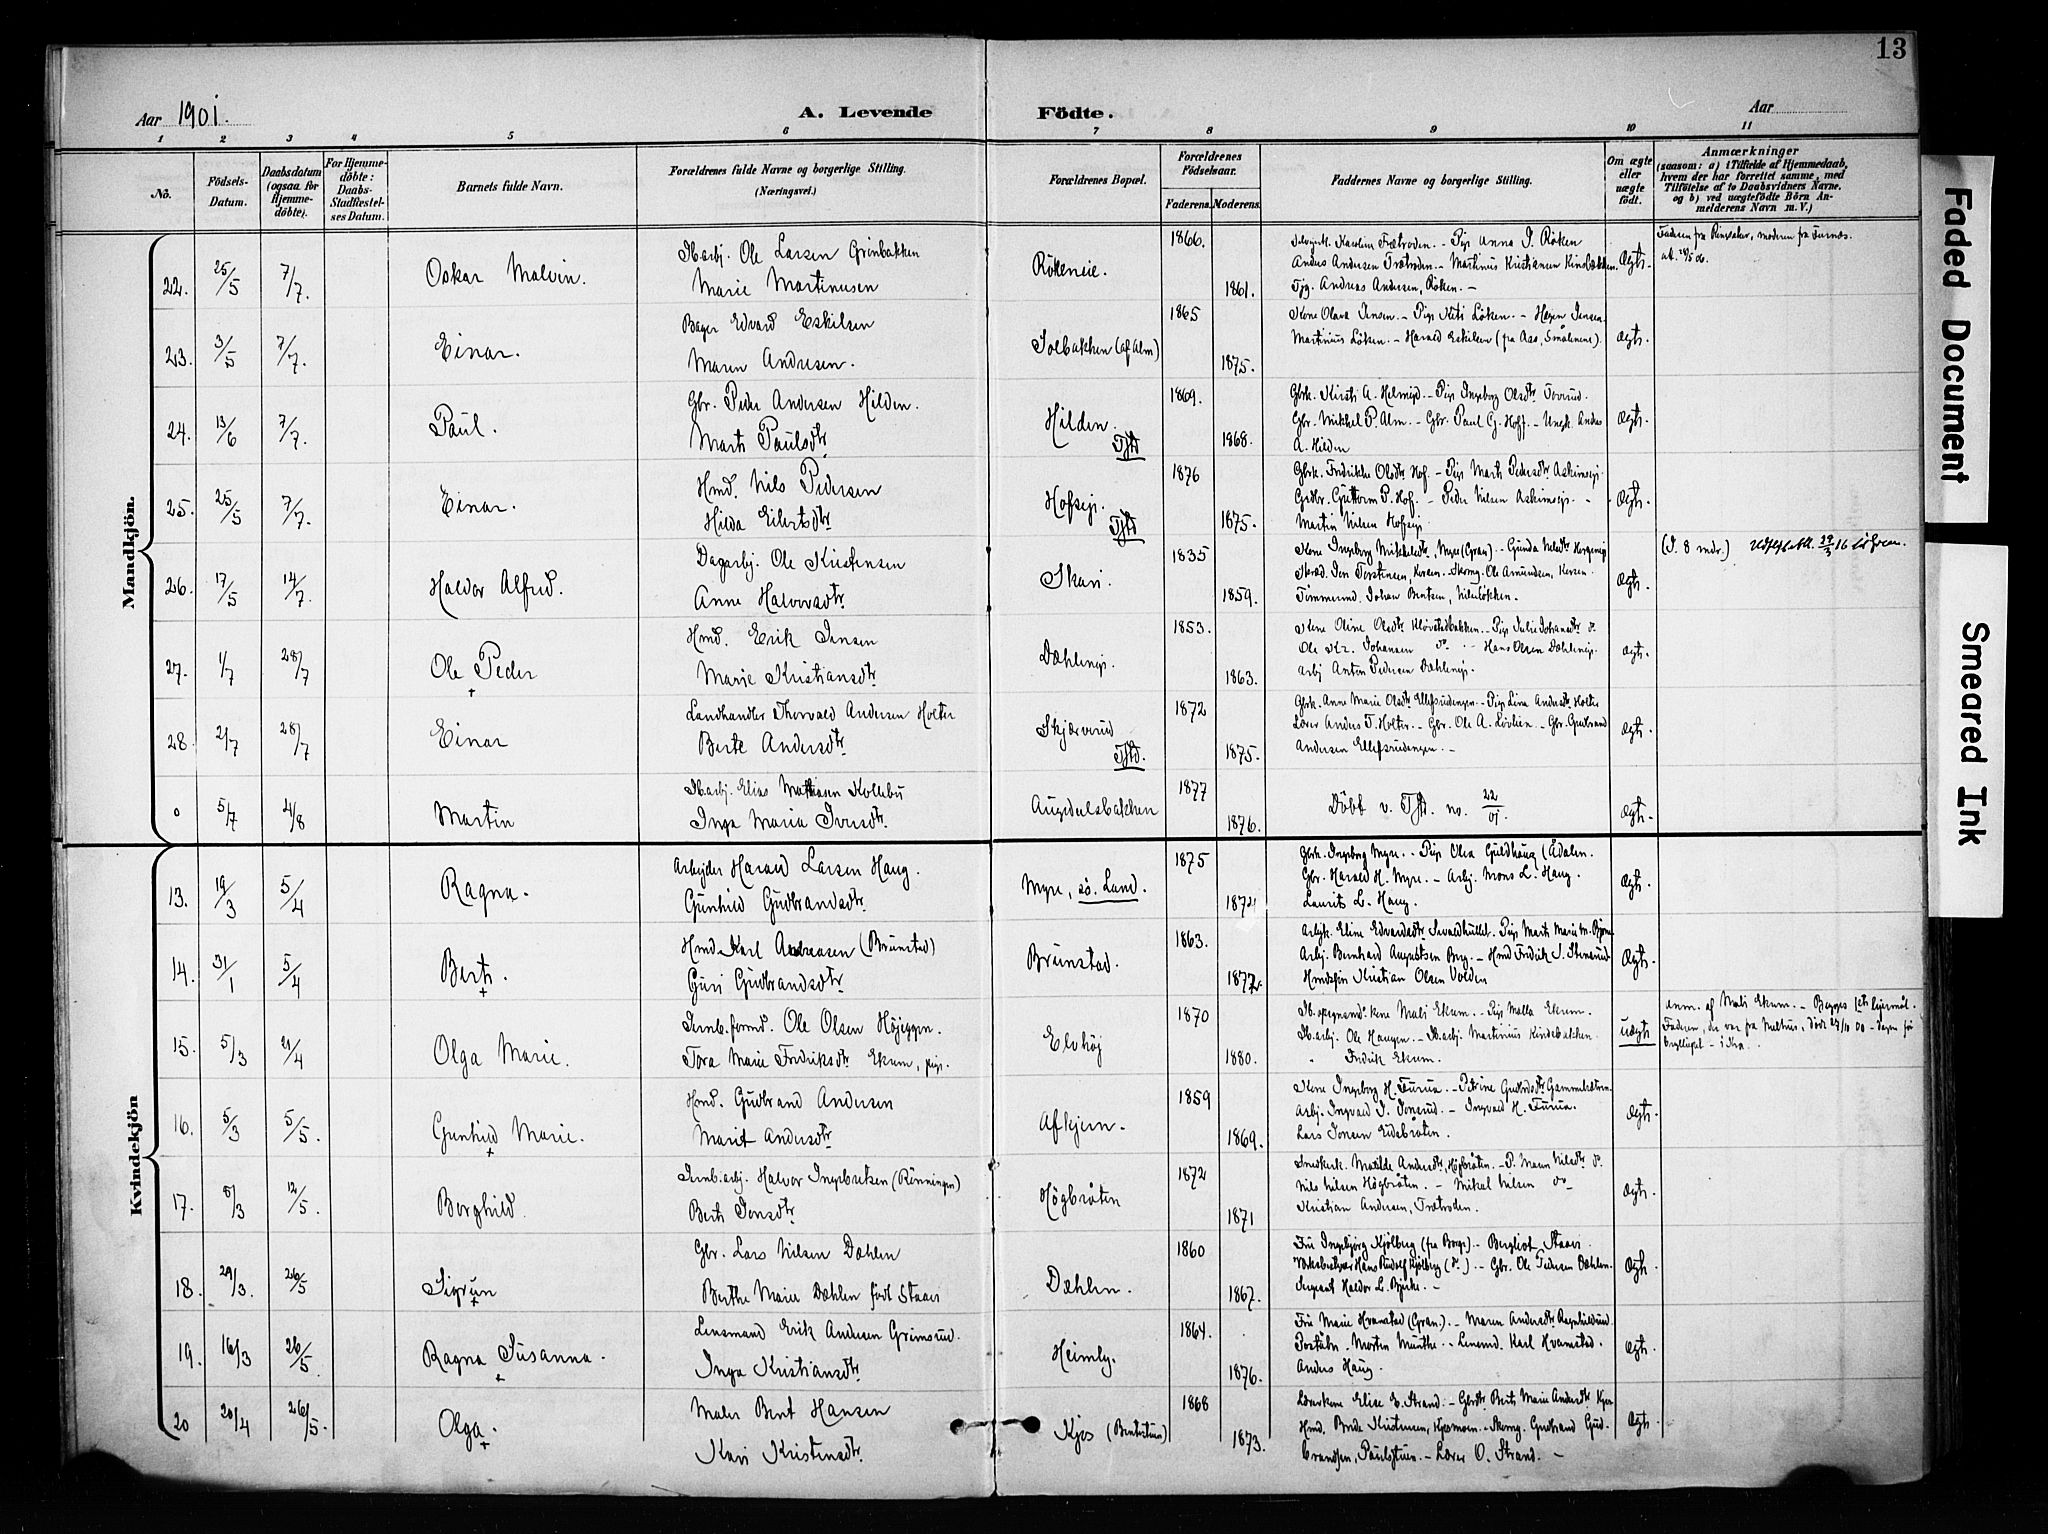 13
Aar 1901.
A. Levende Födte.
Aar
1 2 3 4 5 6 7 8 9 10 11
No.
Födsels-Datum.
Daabsdatum (ogsaa for Hjemme-döbte).
For Hjemme-döbte: Daabs-Stadfæstel-ses Datum.
Barnets fulde Navn.
Forældrenes fulde Navne og borgerlige Stilling.
(Næringsvei.)
Forældrenes Bopæl.
Forældrenes Födselsaar.
Faderens. Moderens.
Faddernes Navne og borgerlige Stilling.
Om ægte eller uægte födt.
Anmærkninger
(saasom: a) i Tilfælde af Hjemmedaab, hvem der har forrettet samme, med Tilföielse af to Daabsvidners Navne, og b) ved uægtefödte Börn An-melderens Navn m. V.)
Mandkjön.
22. 25/5 7/7. Oskar Malvin.
Ole Larsen Grinbakken
Marie Martinusen
Rökeneie. 1866. 1861.
Anna J. Röken
Anders Andersen Trætroden. - Martinus Kristiansen
Andreas Andersen, Röken. -
Ægte.
Faderen fra Ringsaker, moderen fra Furnæs.
23. 3/5 7/7. Einar.
Bager Edvard Eskilsen
Maren Andersen.
Solbakken (af Alm) 1865 1875.
Kone Olava Jensen. - Pige Löken. - Jensen.
Martinius Löken. - Harald Eskilsen (fra Aas, Smålenene).
Ægte.
24. 13/6 7/7. Paul.
Gbr. Peder Andersen Hilden.
Marte Paulsdtr
Hilden. 1869. 1868.
Gbrk. Kirsti A. - Pige Ingeborg Olsdtr
Gbr. Mikkel P. Alm. - Gbr. Paul G. Hoff. - Ungk. Anders
A. Hilden
Ægte.
25. 25/5 7/7. Einar.
Hmd. Nils Pedersen
Hilda Eilertsdtr
Hofseje. 1876 1875.
Gbrk. Fredrikke Olsdtr Hof. - Pige Marte Pedersdtr
Guttorm P. Hof. - Peder Nilsen
Martin Nilsen Hofseje
Ægte.
26. 17/5 14/7. Haldor Alfred.
Dagarbj. Ole Kristensen
Anne Halvorsdtr
Skari 1835 1859.
Kone Ingeborg Mikkelsdtr, Myre (Gran). - Gunda
Ole Amundsen,
Tömmermd. Johan Berntsen,
Ægte.
(J. 8 mdr.)
27. 1/7 28/7 Ole Peder
Hmd. Erik Jensen
Marie Kristiansdtr
Dæhleneje. 1853. 1863.
Kone Oline Olsdtr Klövstadbakken. - Pige Julie Johansdtr do
Ole Kr. Johansen do - Hans Olsen Dæhleneje
Arbj Anton Pedersen Dæhleneje.
Ægte.
28. 2/7 28/7 Einar
Landhandler Thorvald Andersen Holter
Berte Andersdtr
Skjærvrud 1872 1875.
Gbrk. Anne Marie Olsdtr - Pige Lina Andersdtr Holter
Lærer Anders T. Holter. - Gbr. Ole A. Lövlien. - Gbr. Gudbrand
Andersen -
Ægte.
0 5/7 4/8 Martin
Elias Mathiasen Kollebu
Inga Maria Iversdtr.
Augedalsbakken 1877 1876.
Döbt v. Tfst. no. 22/01.
Ægte.
Kvindekjön
13. 19/3 5/4 Ragna.
Arbejder Harald Larsen Haug.
Gunhild Gudbrandsdtr
Myre, sö. Land. 1875
Gbrk. Ingeborg Myre. - Pige Olea Guldhaug (Ådalen.
Gbr. Harald H. Myre. - Arbj. Mons L. Haug.
Laurits L. Haug.
Ægte.
14. 31/1 5/4 Berte.
Hmd. Karl Andreasen (Brunstad)
Guri Gudbrandsdtr
Brunstad. 1863. 1872.
Arbjk. Eline Edvardsdtr Pige Marte Marie
Arbj. Bernhard Augustsen Berg. - Hmd Fredrik J. Stensrud
Kristian Olsen Volden
Ægte.
15. 5/3 21/4 Olga Marie.
Ole Olsen Höjeggen.
Tora Marie Fredriksdtr Ekum, pige.
Elvhöj 1870 1880.
kone Mali Ekum. - Pige Malla Ekum.
Ole Haugen - Martinius Kindebakken.
" Fredrik Ekum.
uægte
anm. af Mali Ekum. - Begges 1ste leiermål.
Faderen, der var fra Melhus, döde 27/10 00 - dagen før
bryllupet - i Kra.
16. 5/3 5/5. Gunhild Marie.
Hmd. Gudbrand Andersen
Marit Andersdtr
Afkjern. 1859 1869.
Kone Ingeborg H. Furua. - Petrine
Arbj. Ingvald J. Jonsrud. - Ingvald H. Furua.
Lars Jonsen Eidsbråten.
Ægte.
17. 5/3 12/5. Borghild.
Jernb.arbj. Halvor Ingebretsen (Rönningen)
Berte Jonsdtr
Högbråten 1872 1871
Matilde Andersdtr, Högbråten. - P. Maren Nilsdtr do
Nils Nilsen Högbråten. - Mikal Nilsen do
Kristian Andersen, Trætroden.
Ægte.
18. 29/3. 26/5 Sigrun
Gbr. Lars Nilsen Dæhlen
Berthe Marie Dæhlen född Staai
Dæhlen. 1860 1867.
Fru Ingebjörg Kjölberg (fra Borge). - Bergliot Staai
Hans Rudolf Kjölberg (do). - Gbr. Ole Pedersen Dæhlen.
Sergeant Haldor L. Bjerke. -
Ægte.
19. 16/3 26/5. Ragna Susanna.
Lensmand Erik Andersen Grimsrud.
Inga Kristiansdtr
Heimly. 1864. 1876.
Fru Marie Hvamstad (Gran). - Maren Andersdtr Ragnhildrud
Poståbn. Morten Munthe. - Lensmd. Karl Hvamstad.
Anders Haug.
Ægte.
20 20/4 26/5. Olga.
Maler Bernt Hansen
Kari Kristensdtr
Kjos 1868 1873.
Lærerkone Elise E. Strand. - Berte Marie Andersdtr Kjos
Hmd. Kristensen, Gudbrand Gud-
brandsen, Paulstuen. - Lærer O. Strand. -
Ægte.
Faded Document
Smeared Ink